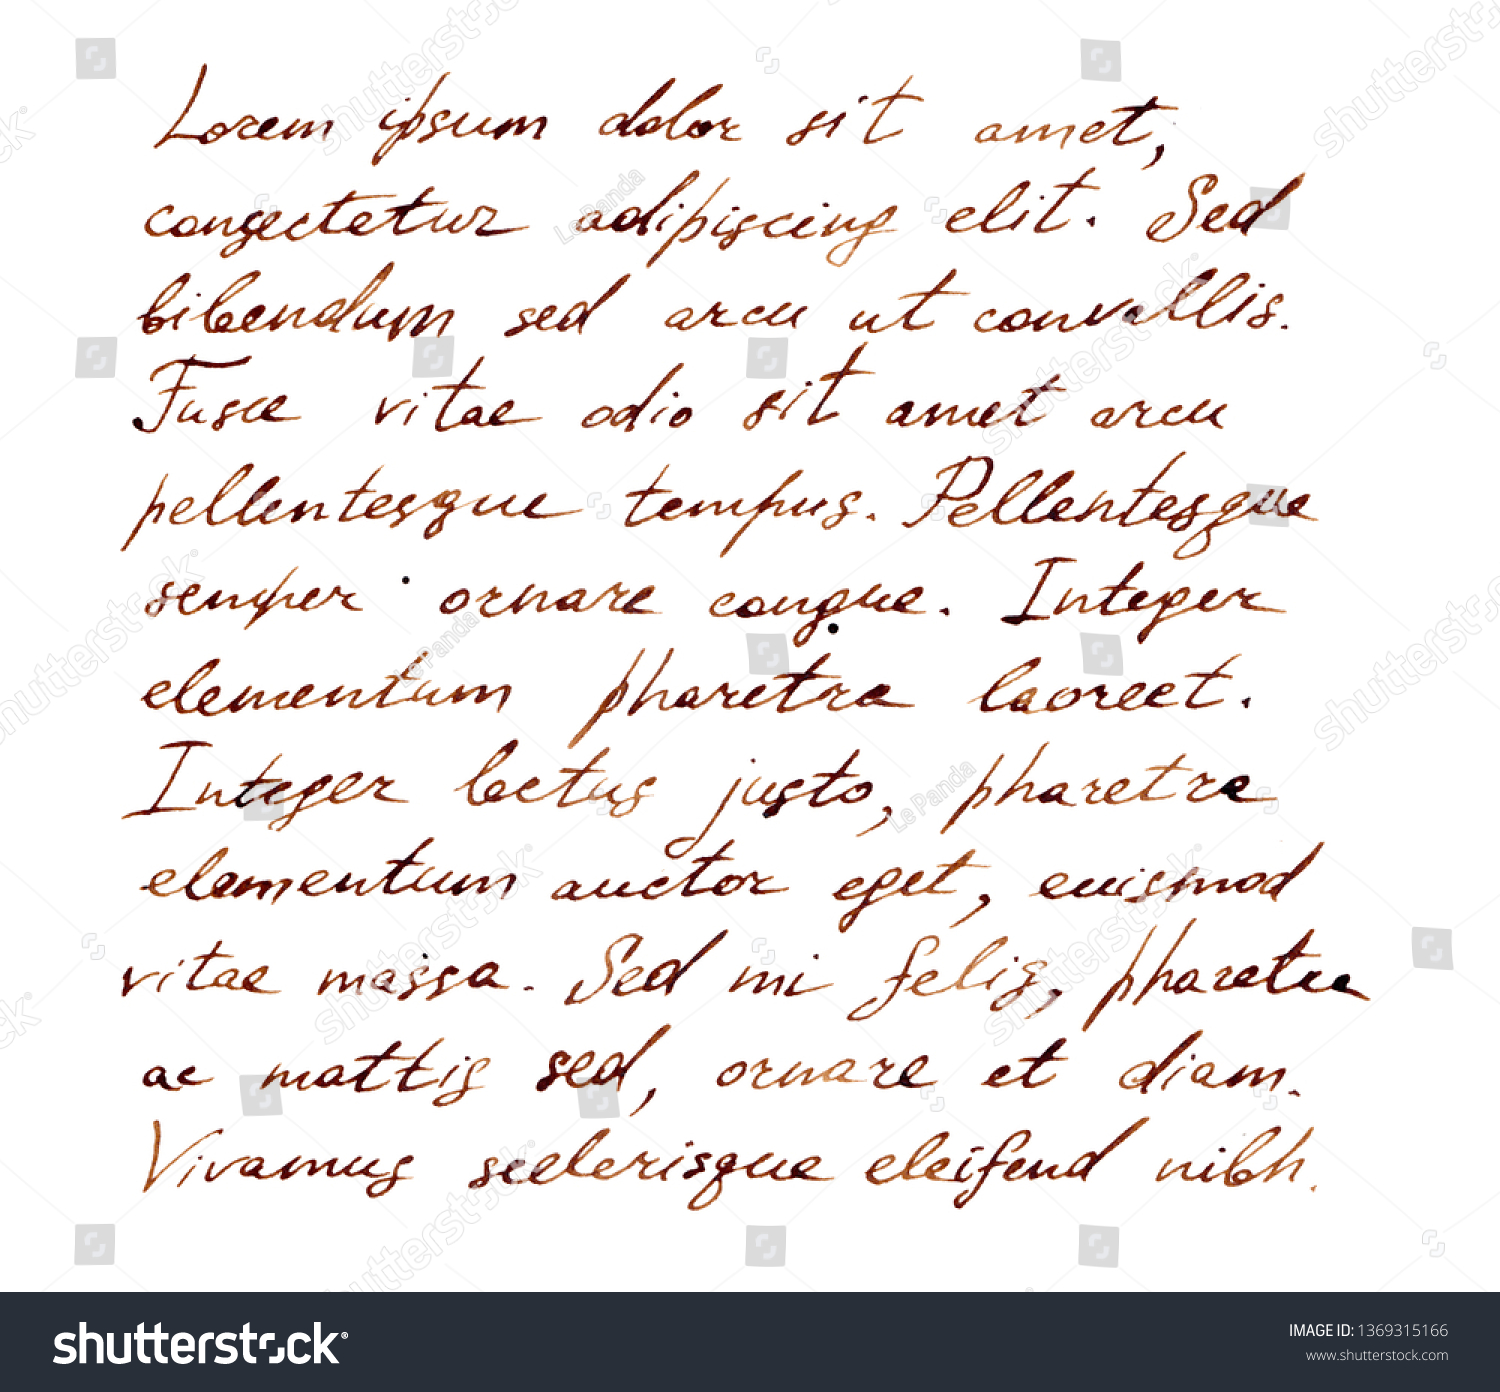 Lorem ipsum dolor sit amet,
consectetur adipiscing elit. Sed
bibendum sed arcu ut convallis.
Fusce vitae odio sit amet arcu
pellentesque tempus. Pellentesque
semper ornare congue. Integer
elementum pharetra laoreet.
Integer lectus justo, pharetra
elementum auctor eget, euismod
vitae massa. Sed mi felis, pharetra
ac mattis sed, ornare et diam.
Vivamus scelerisque eleifend nibh.
shutterstock
IMAGE ID: 1369315166
www.shutterstock.com